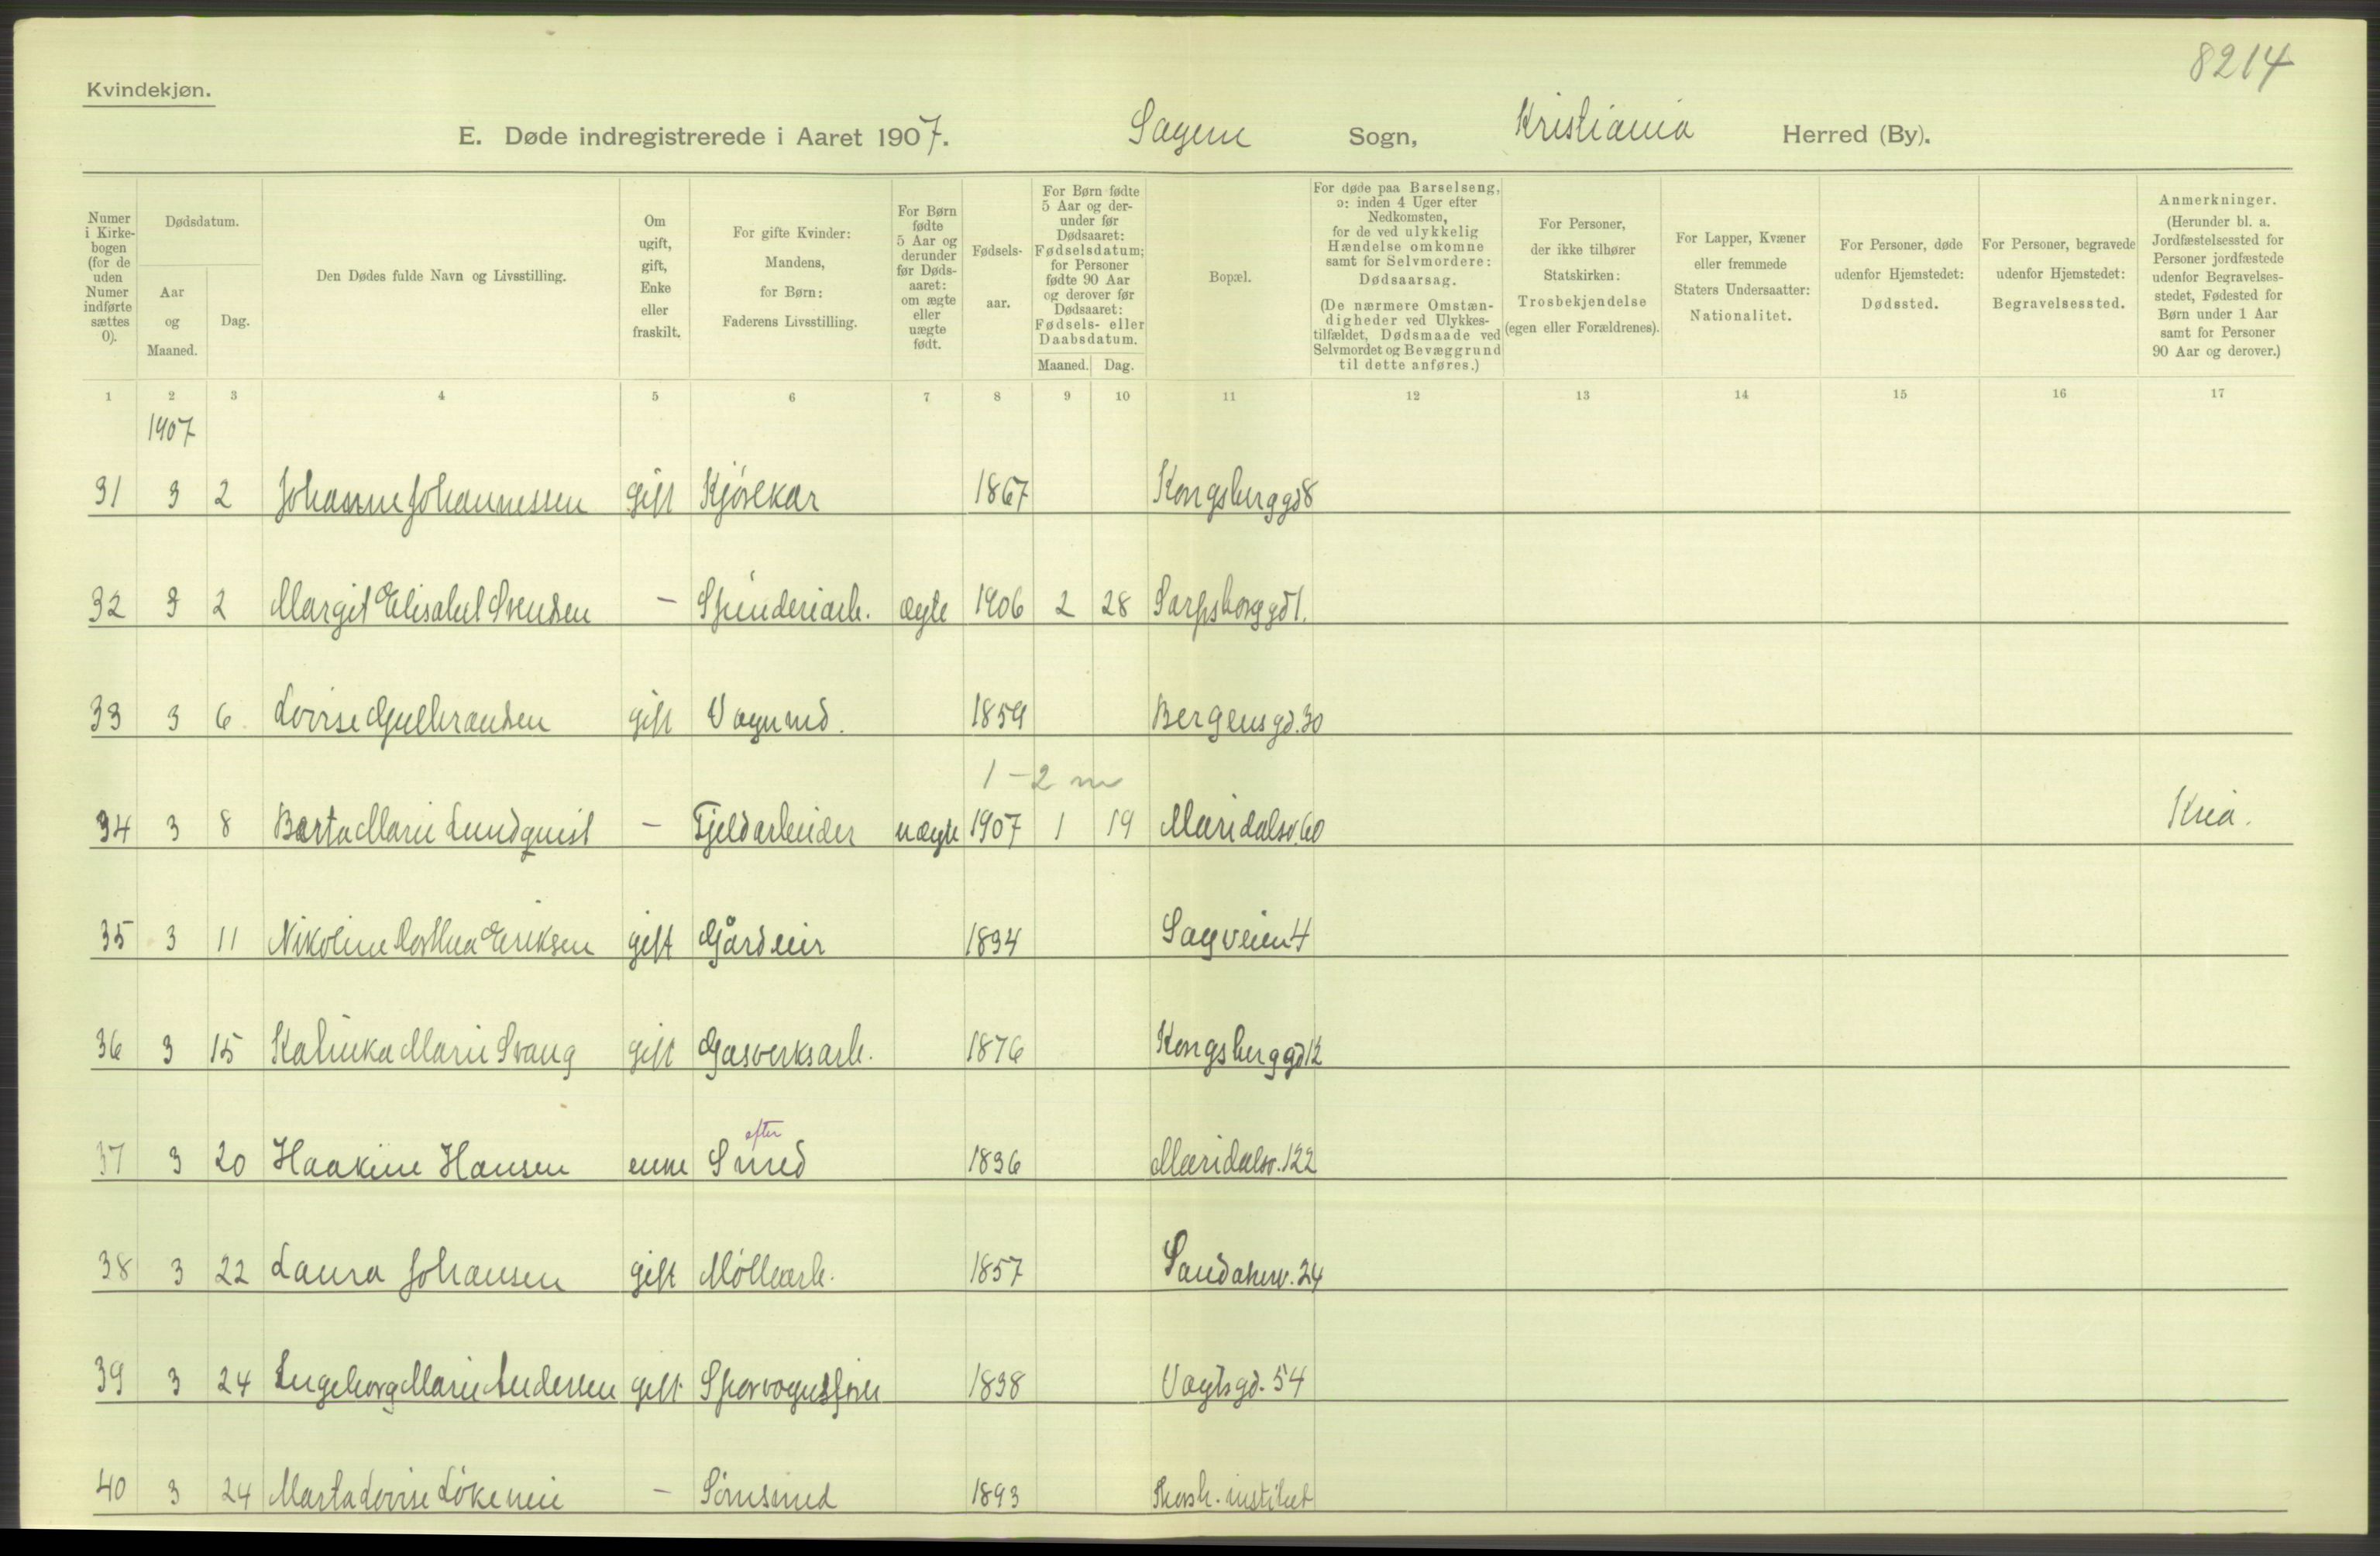 8214
Kvindekjøn.
E. Døde indregistrerede i Aaret 1907. Sagene Sogn, Kristiania Herred (By).
Numer i Kirkebogen (for de uden Numer indførte sættes 0).
Dødsdatum.
Aar og Maaned.
Dag.
Den Dødes fulde Navn og Livsstilling.
Om ugift, gift, Enke eller fraskilt.
For gifte Kvinder: Mandens, for Børn: Faderens Livsstilling.
For Børn fødte 5 Aar og derunder før Dødsaaret: om ægte eller uægte født.
Fødselsaar.
For Børn fødte 5 Aar og derunder før Dødsaaret: Fødselsdatum; for Personer fødte 90 Aar og derover før Dødsaaret: Fødsels- eller Daabsdatum.
Maaned. Dag.
Bopæl.
For døde paa Barselseng, ɔ: inden 4 Uger efter Nedkomsten, for de ved ulykkelig Hændelse omkomne samt for Selvmordere: Dødsaarsag.
(De nærmere Omstændigheder ved Ulykkestilfældet, Dødsmaade ved Selvmordet og Bevæggrund til dette anføres.)
For Personer, der ikke tilhører Statskirken: Trosbekjendelse (egen eller Forældrenes).
For Lapper, Kvæner eller fremmede Staters Undersaatter: Nationalitet.
For Personer, døde udenfor Hjemstedet: Dødssted.
For Personer, begravede udenfor Hjemstedet: Begravelsessted.
Anmerkninger.
(Herunder bl. a. Jordfæstelsessted for Personer jordfæstede udenfor Begravelsesstedet, Fødested for Børn under 1 Aar samt for Personer 90 Aar og derover.)
1 2 3 4 5 6 7 8 9 10 11 12 13 14 15 16 17
1907
31 3 2 Johanne Johannessen gift Kjørekar 1867 Kongsberggd 8
32 3 2 Margit Elisabet Svendsen — Spinderiarb. ægte 1906 2 28 Sarpsborggd 1.
33 3 6 Lovise Gulbrandsen gift Vognmd. 1859 Bergensgd. 30
1 – 2 m
34 3 8 Berta Marie Lundquist — Fjeldarbeider uægte 1907 1 19 Maridalsv. 60 Kria.
35 3 11 Nikoline Dorthea Eriksen gift Gårdeier 1834 Sagveien 4
36 3 15 Katinka Marie Svang gift Gasverksarb. 1876 Kongsberggd 12
efter
37 3 20 Haakine Hansen enke Smed 1836 Maridalsv. 122
38 3 22 Laura Johansen gift Møllearb. 1857 Sandakerv. 24
39 3 24 Ingeborg Marie Andersen gift Sporvognsfører 1838 Vogtsgd. 54
40 3 24 Marta Lovise Løkemie — Sømsmed 1893 institut